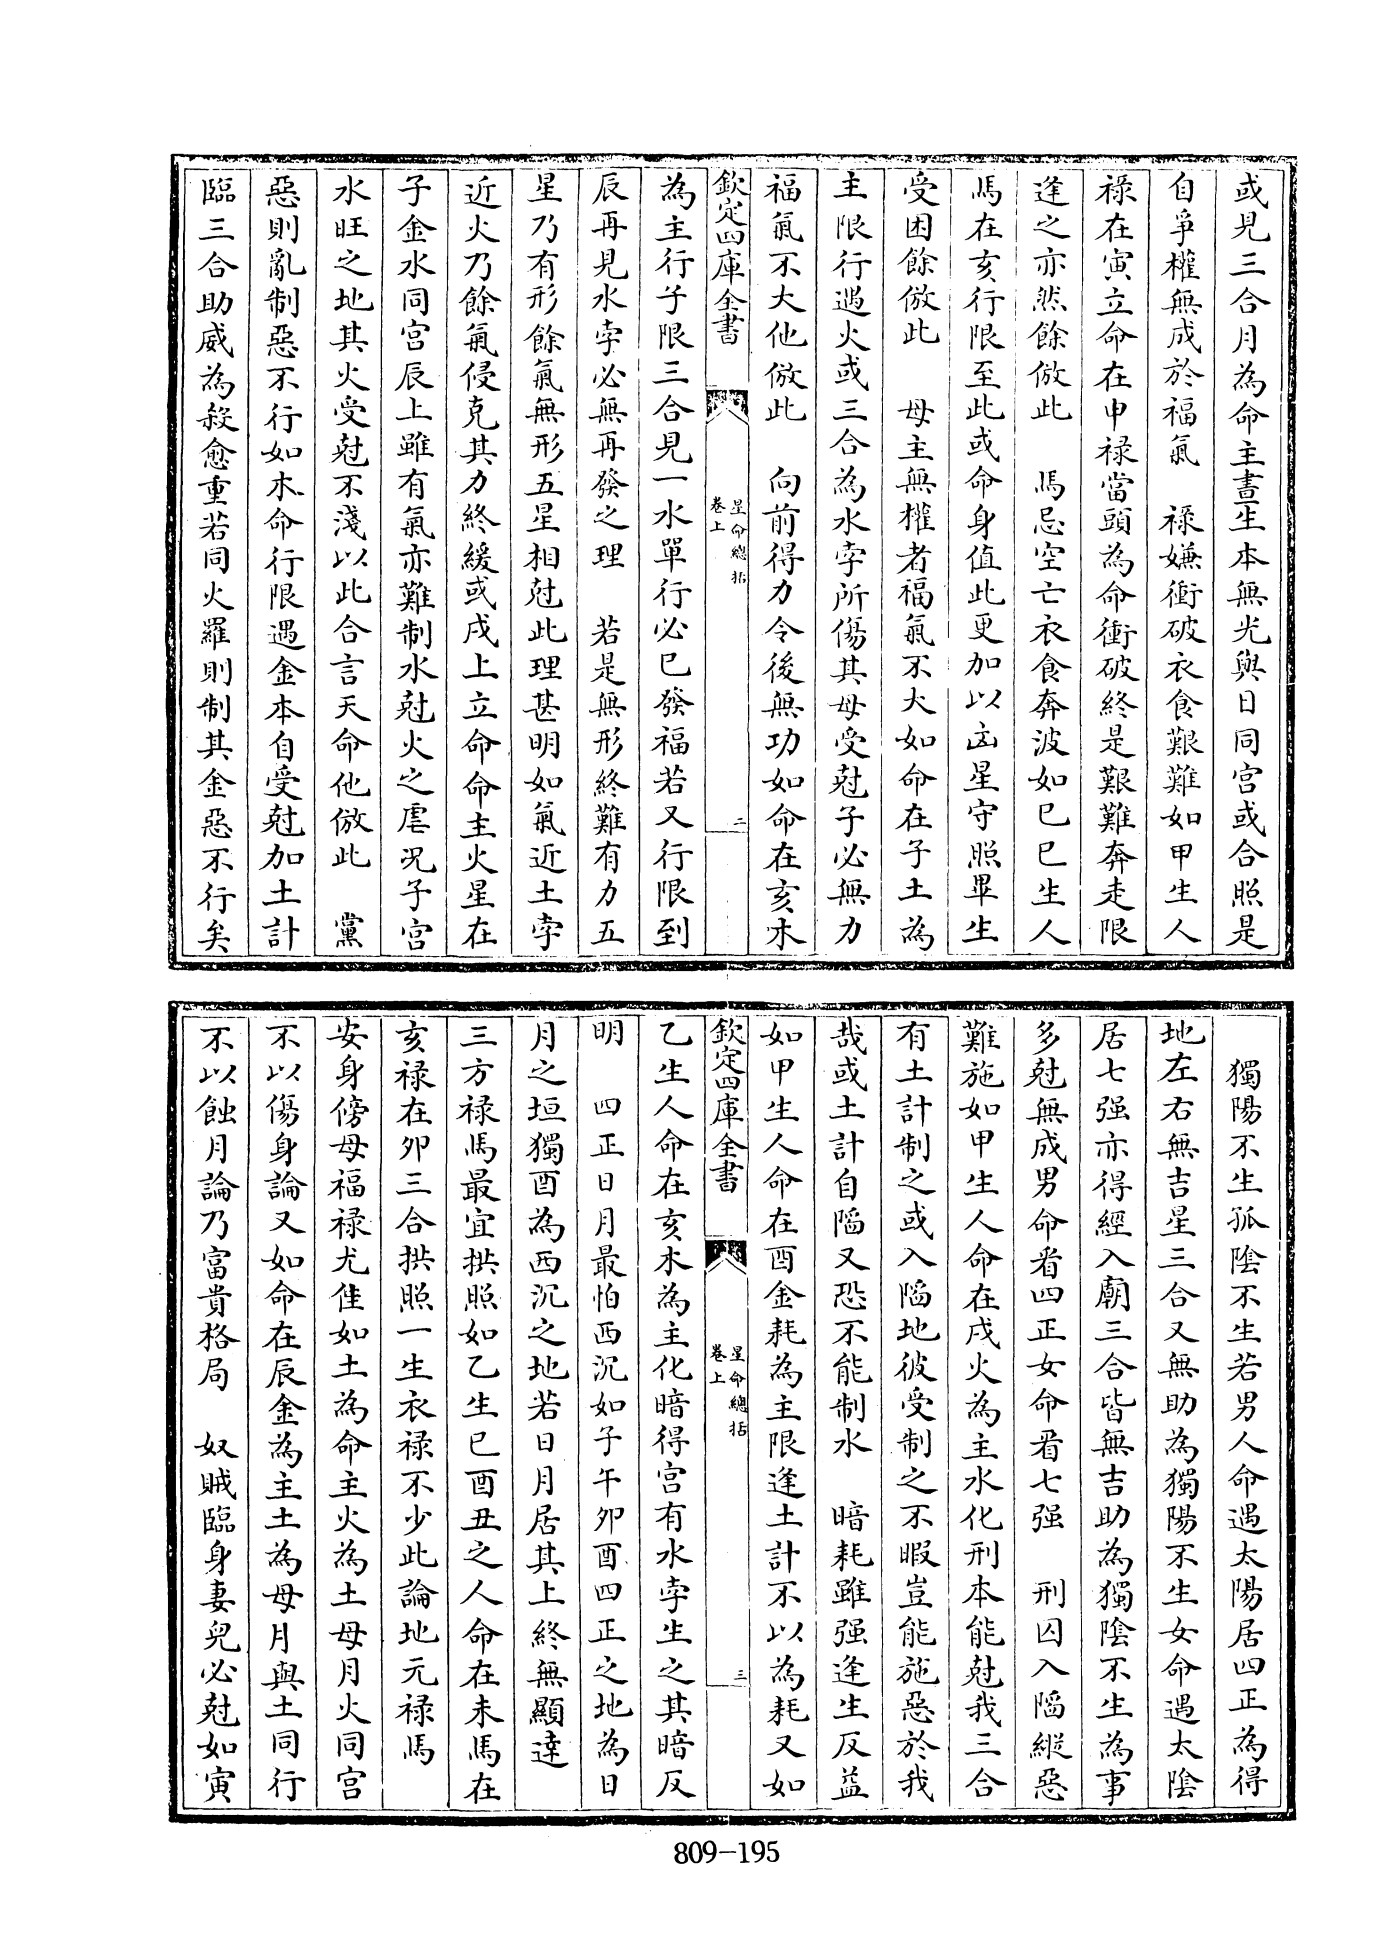 或見三合月為命主晝生本無光與日同宮或合照是
自爭權無成於福氣　祿嫌衝破衣食艱難如甲生人
祿在寅立命在申祿當頭為命衝破終是艱難奔走限
逢之亦然餘倣此　馬忌空亡衣食奔波如巳巳生人
馬在亥行限至此或命身值此更加以凶星守照畢生
受困餘倣此　母主無權者福氣不大如命在子土為
主限行遇火或三合為水孛所傷其母受尅子必無力
福氣不大他倣此　向前得力令後無功如命在亥木
欽定四庫全書
星命總括
卷上
二
為主行子限三合見一水單行必已發福若又行限到
辰再見水孛必無再發之理　若是無形終難有力五
星乃有形餘氣無形五星相尅此理甚明如氣近土孛
近火乃餘氣侵克其力終緩或戌上立命命主火星在
子金水同宮辰上雖有氣亦難制水尅火之虐况子宮
水旺之地其火受尅不淺以此合言天命他倣此　黨
惡則亂制惡不行如木命行限遇金本自受尅加土計
臨三合助威為殺愈重若同火羅則制其金惡不行矣
獨陽不生孤陰不生若男人命遇太陽居四正為得
地左右無吉星三合又無助為獨陽不生女命遇太陰
居七强亦得經入廟三合皆無吉助為獨陰不生為事
多尅無成男命看四正女命看七强　刑囚入陷縱惡
難施如甲生人命在戌火為主水化刑本能尅我三合
有土計制之或入陷地彼受制之不暇豈能施惡於我
哉或土計自陷又恐不能制水　暗耗雖强逢生反益
如甲生人命在酉金耗為主限逢土計不以為耗又如
欽定四庫全書
星命總括
卷上
三
乙生人命在亥木為主化暗得宮有水孛生之其暗反
明　四正日月最怕西沉如子午卯酉四正之地為日
月之垣獨酉為西沉之地若日月居其上終無顯達
三方祿馬最宜拱照如乙生巳酉丑之人命在未馬在
亥祿在卯三合拱照一生衣祿不少此論地元祿馬
安身傍母福祿尤佳如土為命主火為土母月火同宮
不以傷身論又如命在辰金為主土為母月與土同行
不以蝕月論乃富貴格局　奴賊臨身妻兒必尅如寅
809-195